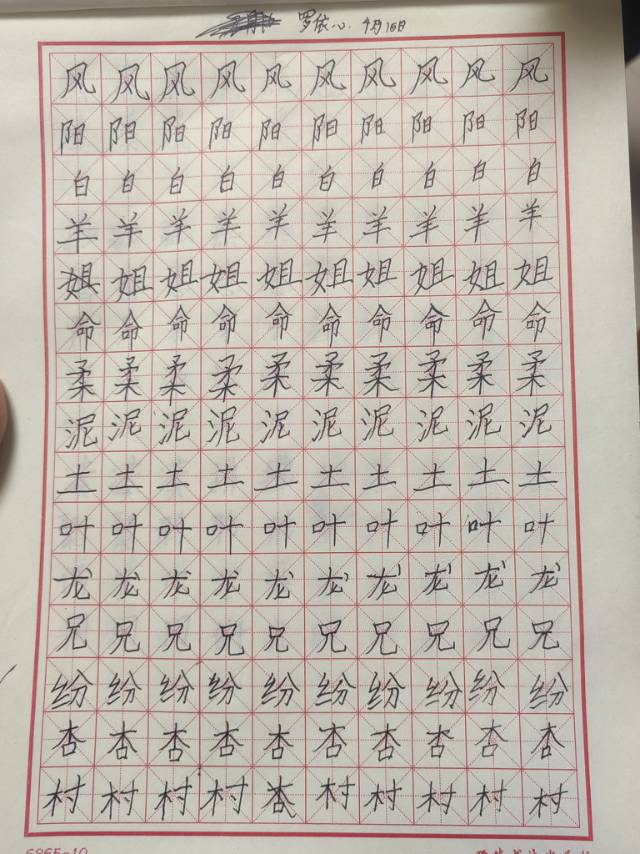 罗依心 9月16日
风风风风风风风风风风
阳阳阳阳阳阳阳阳阳阳
白白白白白白白白白白
羊羊羊羊羊羊羊羊羊羊
姐姐姐姐姐姐姐姐姐姐
命命命命命命命命命命
柔柔柔柔柔柔柔柔柔柔
泥泥泥泥泥泥泥泥泥泥
土土土土土土土土土土
叶叶叶叶叶叶叶叶叶叶
龙龙龙龙龙龙龙龙龙龙
兄兄兄兄兄兄兄兄兄兄
纷纷纷纷纷纷纷纷纷纷
杏杏杏杏杏杏杏杏杏杏
村村村村杏村村村村村